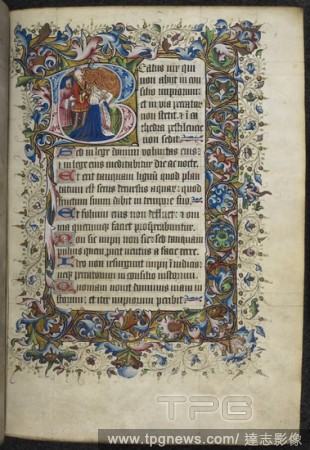 Beatus vir qui
non abiit in con
silio impiorum:
et in via peccator
non stetit: & i ca
thedra pestilencie
non sedit.
Sed in lege domini voluntas eius:
in lege eius meditabitur die ac nocte.
Et erit tanquam lignu quod plan
tatum est secus decursus aquar: quod
fructum suum dabit in tempore suo.
Et folium eius non defluet: & om
nia quecunque faciet prosperabuntur.
Non sic impii non sic: sed tanquam
pulvis quem proicit ventus a facie terre.
Ideo non resurgunt impii in iudicio:
neque peccatores in consilio iustorum.
Quoniam novit dominus viam iu
storum: et iter impiorum peribit.
TPG
www.tpgnews.com/ 達志影像